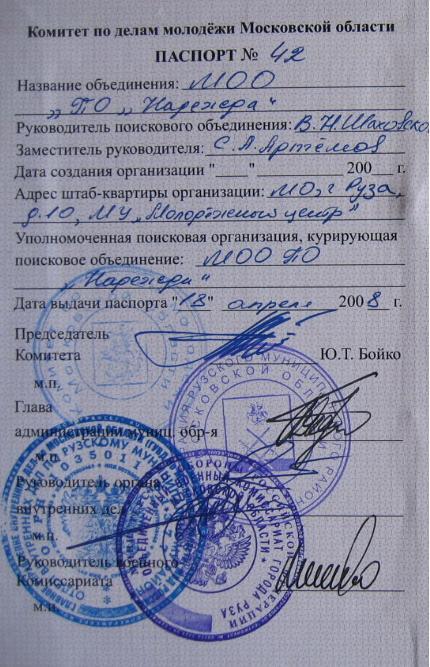 Комитет по делам молодёжи Московской области
ПАСПОРТ № 42
Название объединения: МОО
„ ПО „ Надежда “
Руководитель поискового объединения: В.Н.
Заместитель руководителя: С.А. Артёмов
Дата создания организации "____" ________ 200___ г.
Адрес штаб-квартиры организации: МО, г Руза,
д.10, МУ „Молодёжный центр“
Уполномоченная поисковая организация, курирующая
поисковое объединение: МОО ПО
„Надежда“
Дата выдачи паспорта "18" апреля 2008 г.
Председатель
Комитета Ю.Т. Бойко
м.п.
Глава
администрации муниц. обр-я
м.п.
Руководитель органа
внутренних дел
м.п.
Руководитель военного
Комиссариата
м.п.
ГОРОДА РУЗА